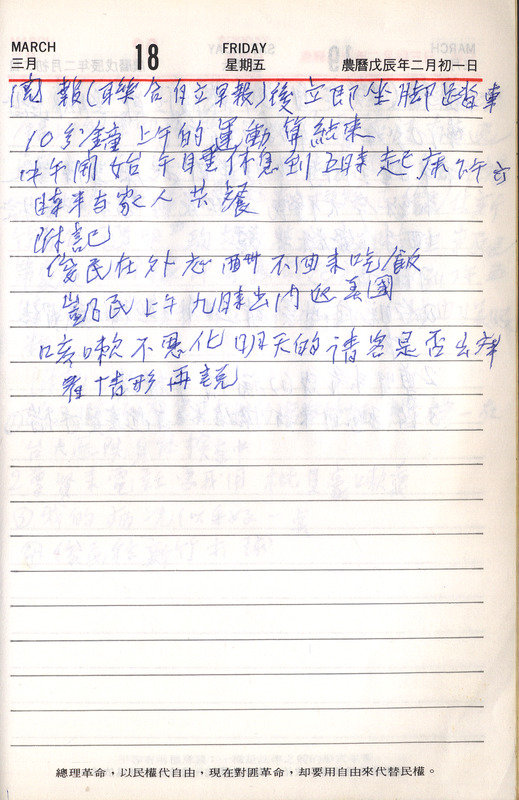 MARCH 18 FRIDAY
三月 星期五 農曆戊辰年二月初一日
閱報(聯合自立早報)後立即坐腳踏車
10分鐘上午的運動算結束
中午開始午睡休息到五時起床下午六
時半與家人共餐
附記
俊民在外应酬不回来吃飯
凱民上午九時出門返美國
咳嗽不惡化明天的請客是否出席
看情形再說
總理革命，以民權代自由，現在對匪革命，却要用自由來代替民權。